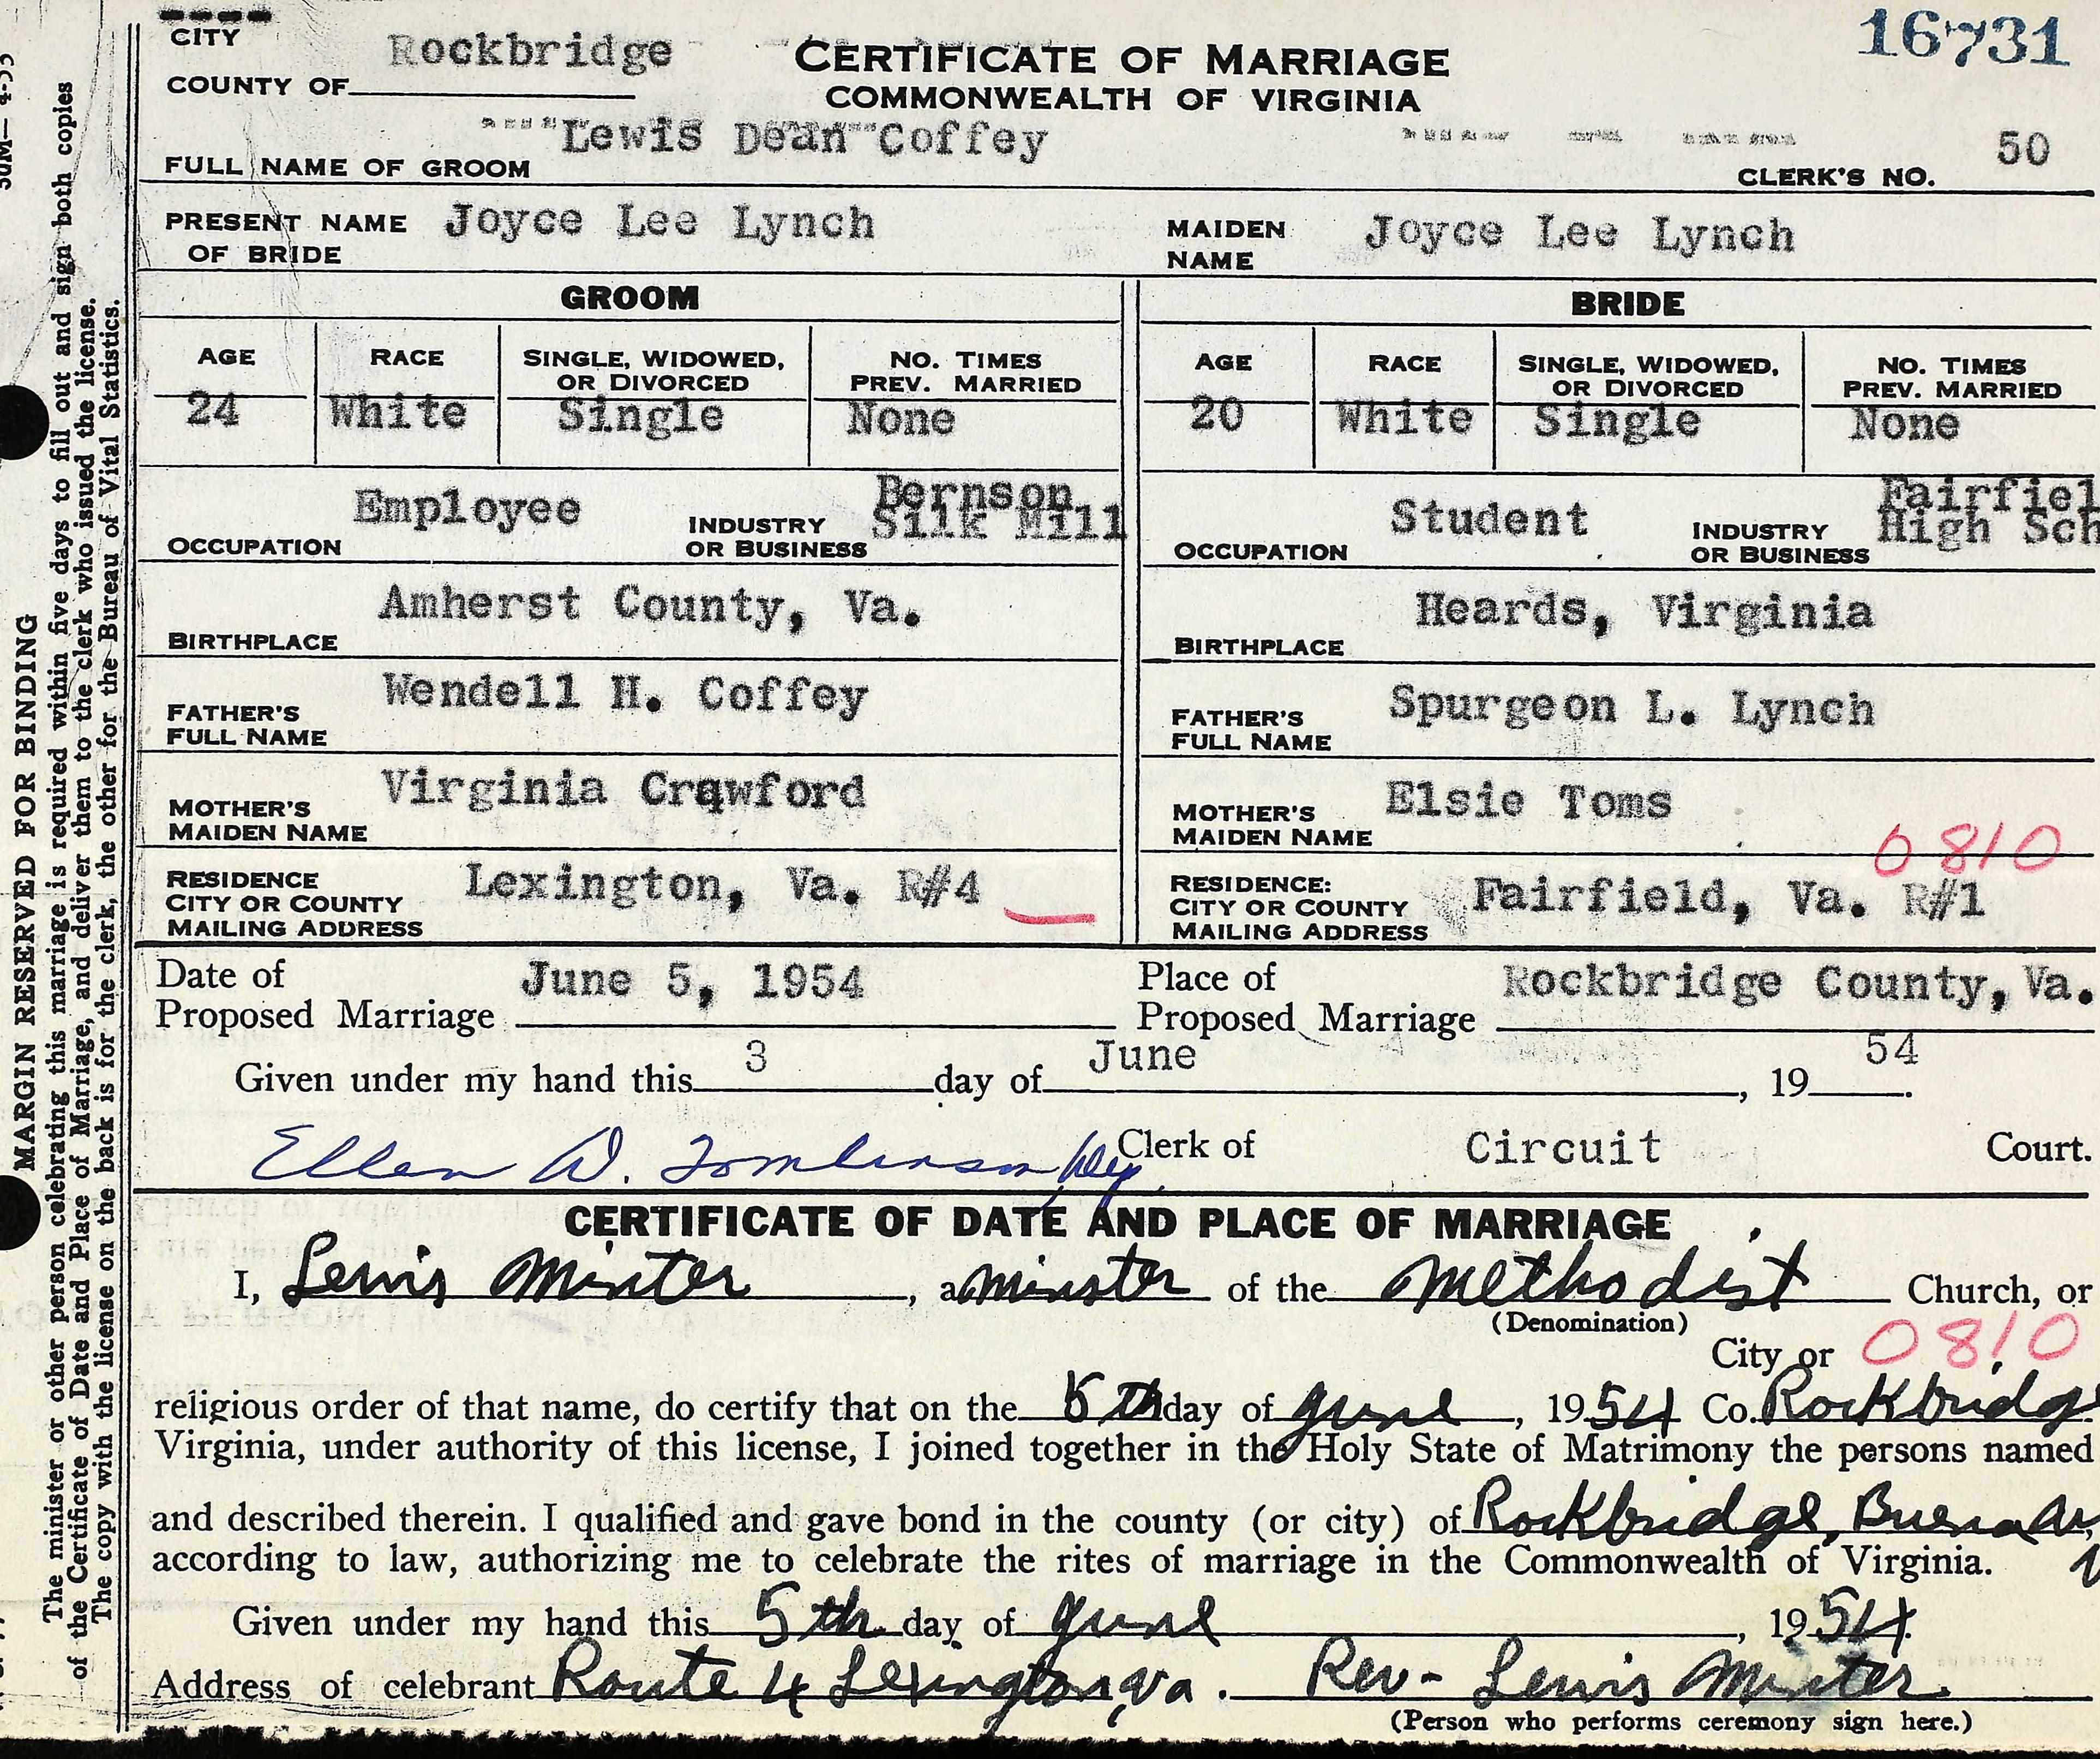 CITY
COUNTY OF Rockbridge
CERTIFICATE OF MARRIAGE
COMMONWEALTH OF VIRGINIA
16731
FULL NAME OF GROOM Lewis Dean Coffey
CLERK'S NO. 50
PRESENT NAME OF BRIDE Joyce Lee Lynch
MAIDEN NAME Joyce Lee Lynch
GROOM
AGE RACE SINGLE, WIDOWED, OR DIVORCED NO. TIMES PREV. MARRIED
24 White Single None
OCCUPATION Employee INDUSTRY OR BUSINESS Bernson Silk Mill
BIRTHPLACE Amherst County, Va.
FATHER'S FULL NAME Wendell H. Coffey
MOTHER'S MAIDEN NAME Virginia Crawford
RESIDENCE CITY OR COUNTY MAILING ADDRESS Lexington, Va. R#4
BRIDE
AGE RACE SINGLE, WIDOWED, OR DIVORCED NO. TIMES PREV. MARRIED
20 White Single None
OCCUPATION Student INDUSTRY OR BUSINESS Fairfiel High Sch
BIRTHPLACE Heards, Virginia
FATHER'S FULL NAME Spurgeon L. Lynch
MOTHER'S MAIDEN NAME Elsie Toms
0810
RESIDENCE: CITY OR COUNTY MAILING ADDRESS Fairfield, Va. R#1
Date of Proposed Marriage June 5, 1954
Place of Proposed Marriage Rockbridge County, Va.
Given under my hand this 3 day of June, 19 54.
Ellen D. Tomlinson, Dep Clerk of Circuit Court.
CERTIFICATE OF DATE AND PLACE OF MARRIAGE
I, Lewis Minter, a minster of the Methodist Church, or
(Denomination)
City or 0810
religious order of that name, do certify that on the 5th day of June, 1954 Co. Rockbridg
Virginia, under authority of this license, I joined together in the Holy State of Matrimony the persons named
and described therein. I qualified and gave bond in the county (or city) of Rockbridge, Buena
according to law, authorizing me to celebrate the rites of marriage in the Commonwealth of Virginia.
Given under my hand this 5th day of June, 1954.
Address of celebrant Route 4 Lexington, Va. Rev- Lewis Minter
(Person who performs ceremony sign here.)
MARGIN RESERVED FOR BINDING
The minister or other person celebrating this marriage is required within five days to fill out and sign both copies
of the Certificate of Date and Place of Marriage, and deliver them to the clerk who issued the license.
The copy with the license on the back is for the clerk, the other for the Bureau of Vital Statistics.